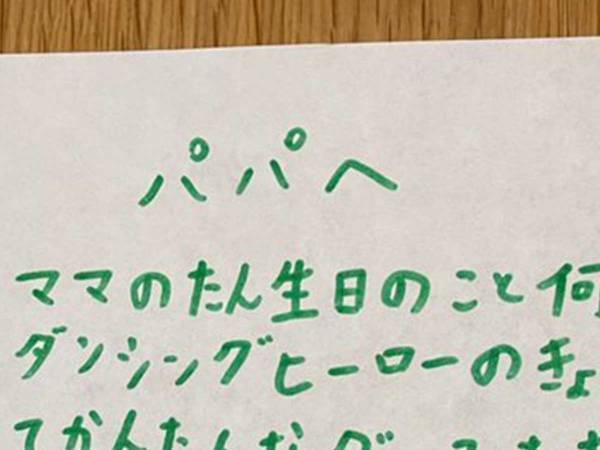 パパへ
ママのたん生日のこと何
ダンシングヒーローのきょ
てかんたんな